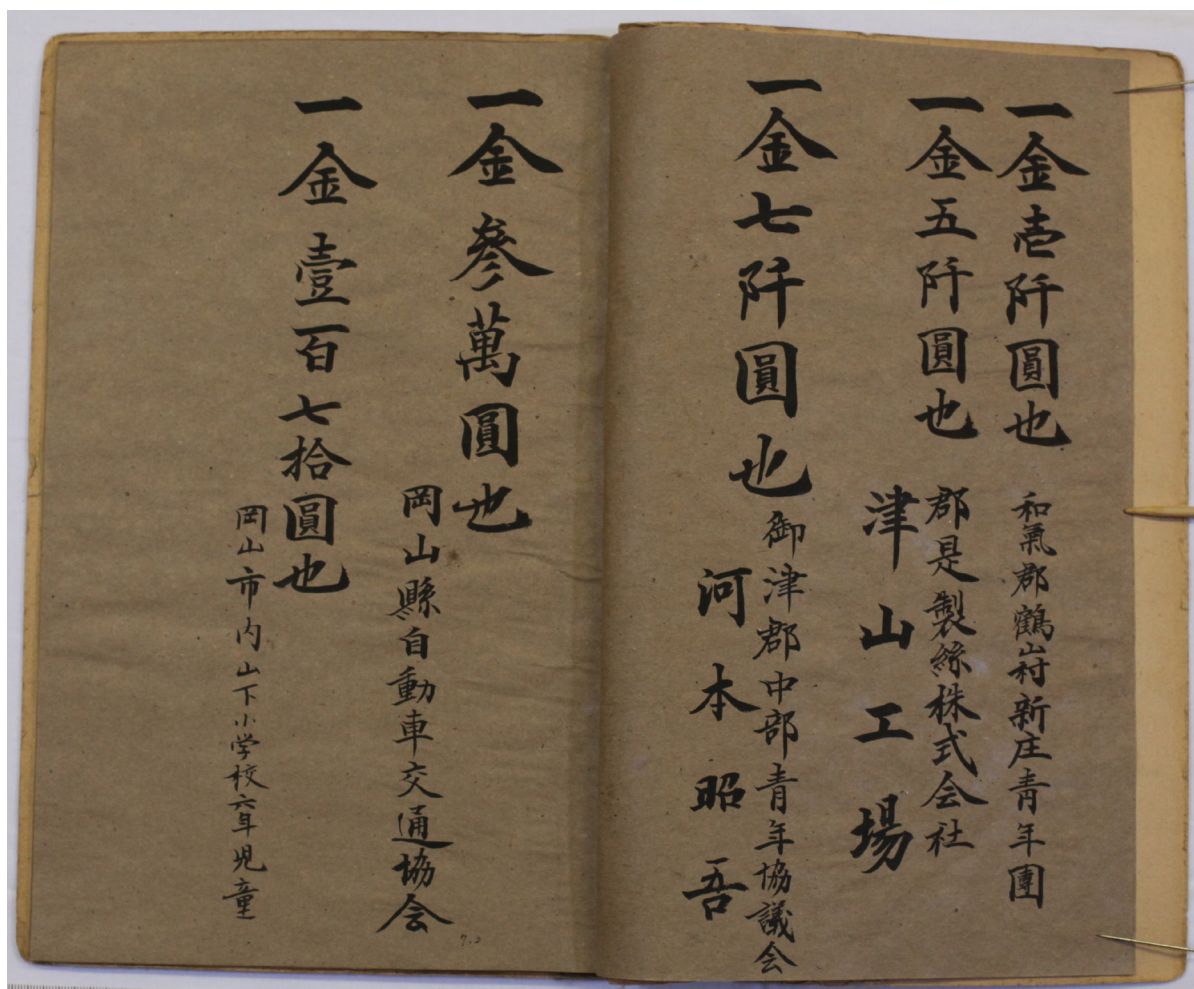 一金壱阡圓也
和氣郡鶴山村新庄青年團
一金五阡圓也
郡是製絲株式会社
津山工場
一金七阡圓也
御津郡中部青年協議会
河本昭吾
一金参萬圓也
岡山縣自動車交通協会
一金壹百七拾圓也
岡山市内山下小学校六年児童